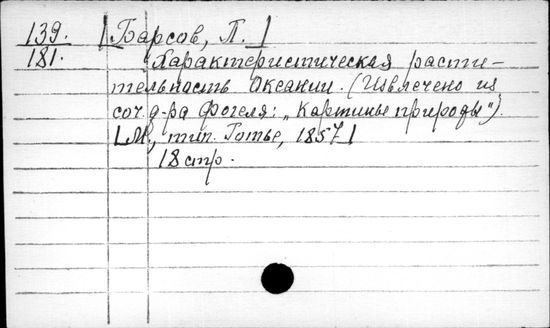 139. [Барсов, П.]
181. Характеристическая расти-
тельность Океании. (Извлечено из
соч. д-ра Фогеля: „Картины природы").
[М., тип. Готье, 1857]
18 стр.